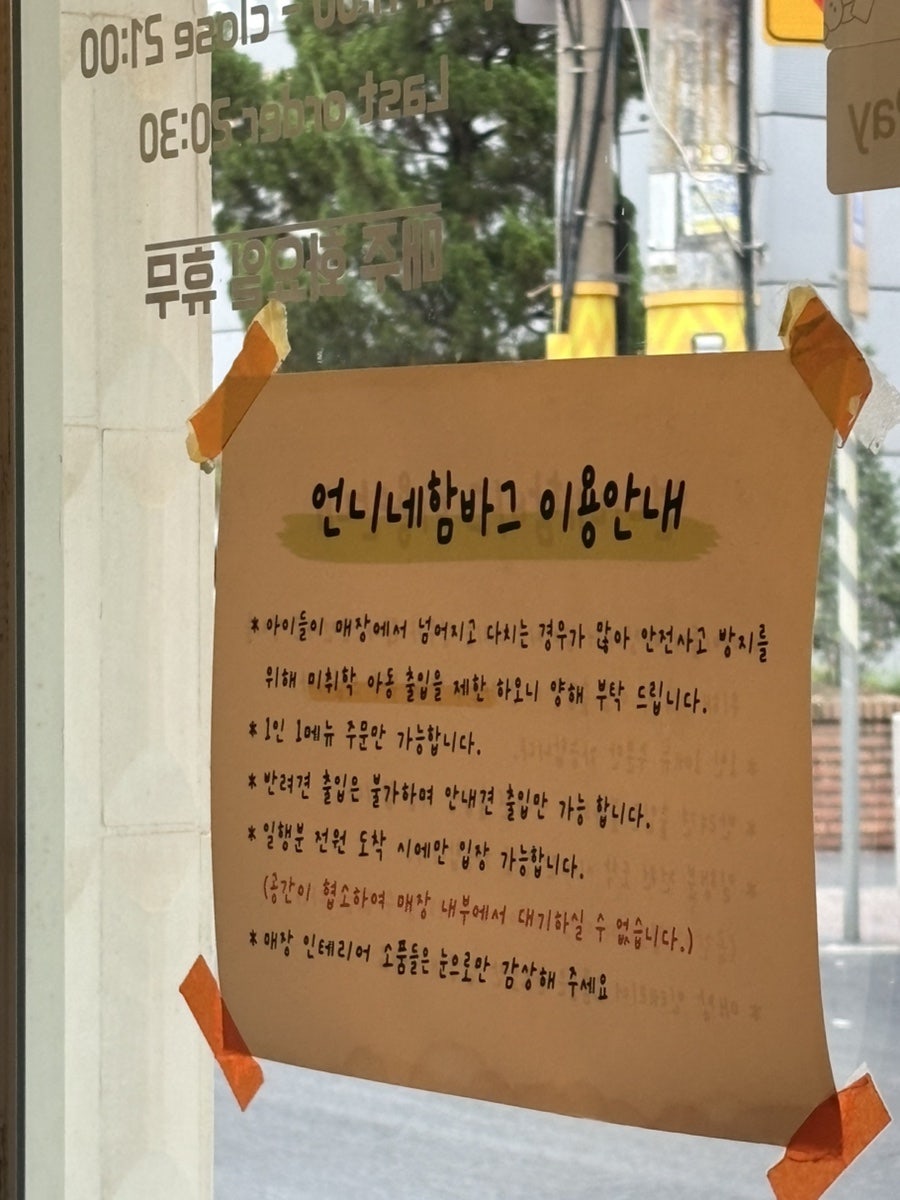 close 21:00
Last order 20:30
매주 화요일 휴무
Pay
언니네함바그 이용안내
* 아이들이 매장에서 넘어지고 다치는 경우가 많아 안전사고 방지를
위해 미취학 아동 출입을 제한 하오니 양해 부탁 드립니다.
* 1인 1메뉴 주문만 가능합니다.
* 반려견 출입은 불가하며 안내견 출입만 가능 합니다.
* 일행분 전원 도착 시에만 입장 가능합니다.
(공간이 협소하여 매장 내부에서 대기하실 수 없습니다.)
* 매장 인테리어 소품들은 눈으로만 감상해 주세요